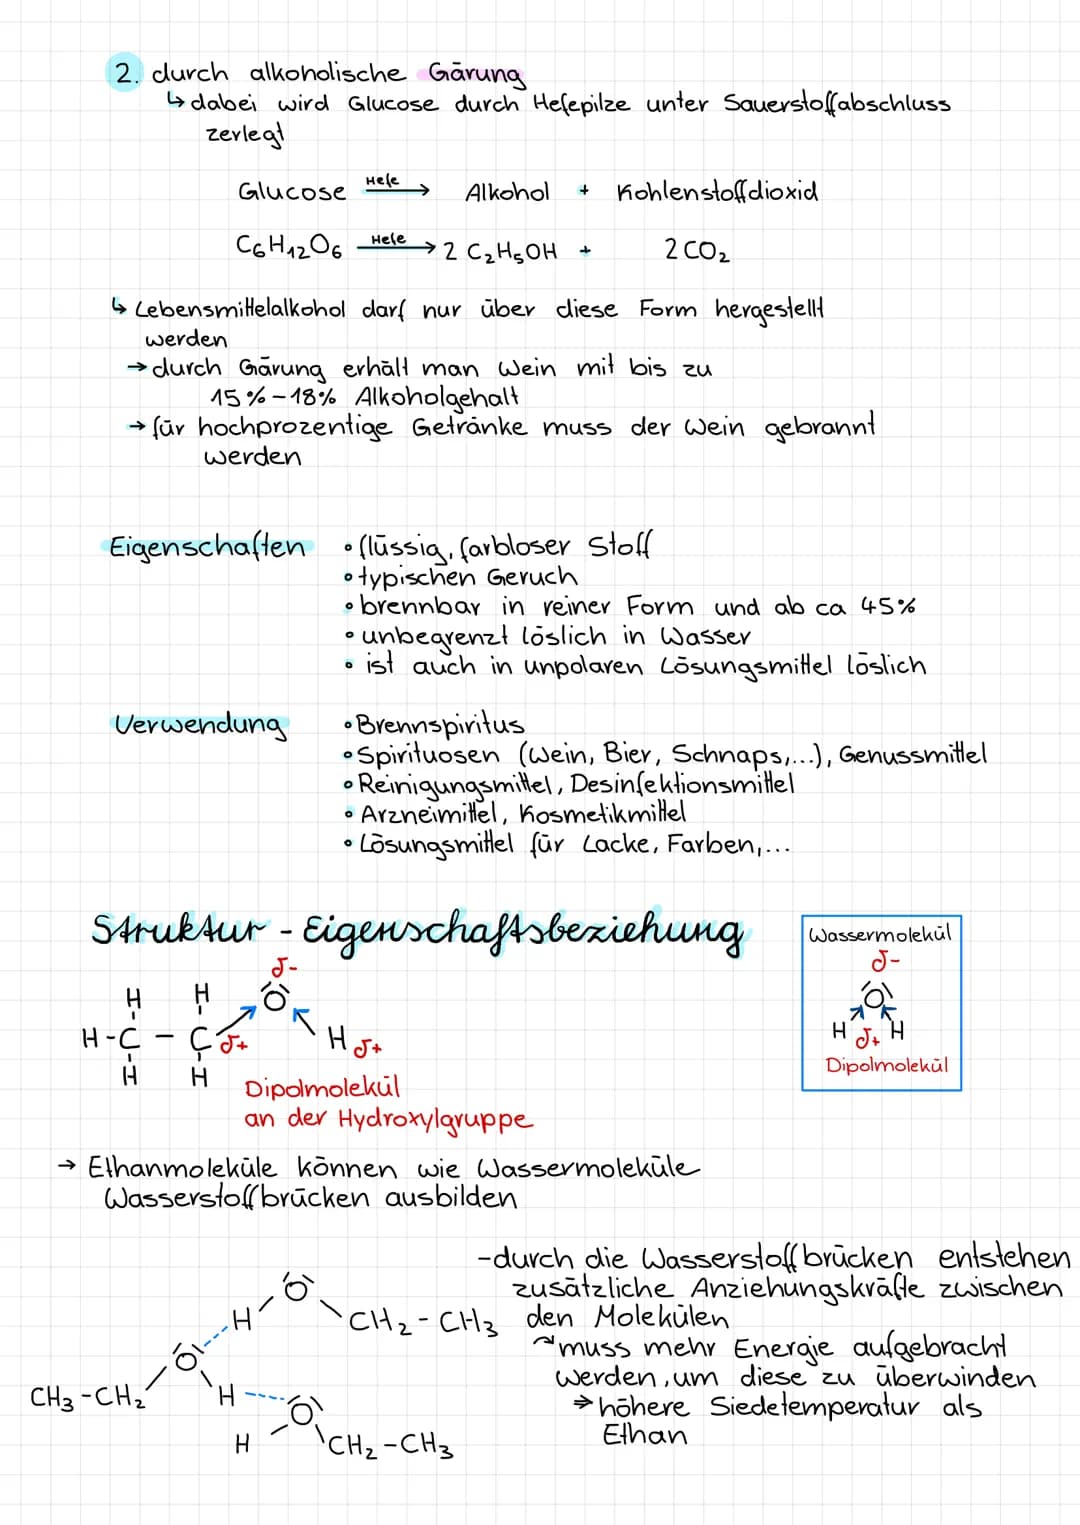 2. durch alkoholische Gärung
↳ dabei wird Glucose durch Hefepilze unter Sauerstoffabschluss
zerlegt
Glucose Hefe → Alkohol + Kohlenstoffdioxid
C₆H₁₂O₆ Hefe → 2 C₂H₅OH + 2 CO₂
↳ Lebensmittelalkohol darf nur über diese Form hergestellt
werden
→ durch Gärung erhält man Wein mit bis zu
15% - 18% Alkoholgehalt
→ für hochprozentige Getränke muss der Wein gebrannt
werden
Eigenschaften • flüssig, farbloser Stoff
• typischen Geruch
• brennbar in reiner Form und ab ca 45%
• unbegrenzt löslich in Wasser
• ist auch in unpolaren Lösungsmittel löslich
Verwendung • Brennspiritus
• Spirituosen (Wein, Bier, Schnaps,...), Genussmittel
• Reinigungsmittel, Desinfektionsmittel
• Arzneimittel, Kosmetikmittel
• Lösungsmittel für Lacke, Farben,...
Struktur - Eigenschaftsbeziehung
δ-
H H O
H - C - C δ+ H δ+
H H
Dipolmolekül
an der Hydroxylgruppe
Wassermolekül
δ-
O
H δ+ H
Dipolmolekül
→ Ethanmoleküle können wie Wassermoleküle
Wasserstoffbrücken ausbilden
- durch die Wasserstoffbrücken entstehen
zusätzliche Anziehungskräfte zwischen
den Molekülen
↝ muss mehr Energie aufgebracht
werden, um diese zu überwinden
⇒ höhere Siedetemperatur als
Ethan
O
H CH₂ - CH₃
O
CH₃ - CH₂ H
O
H CH₂ - CH₃